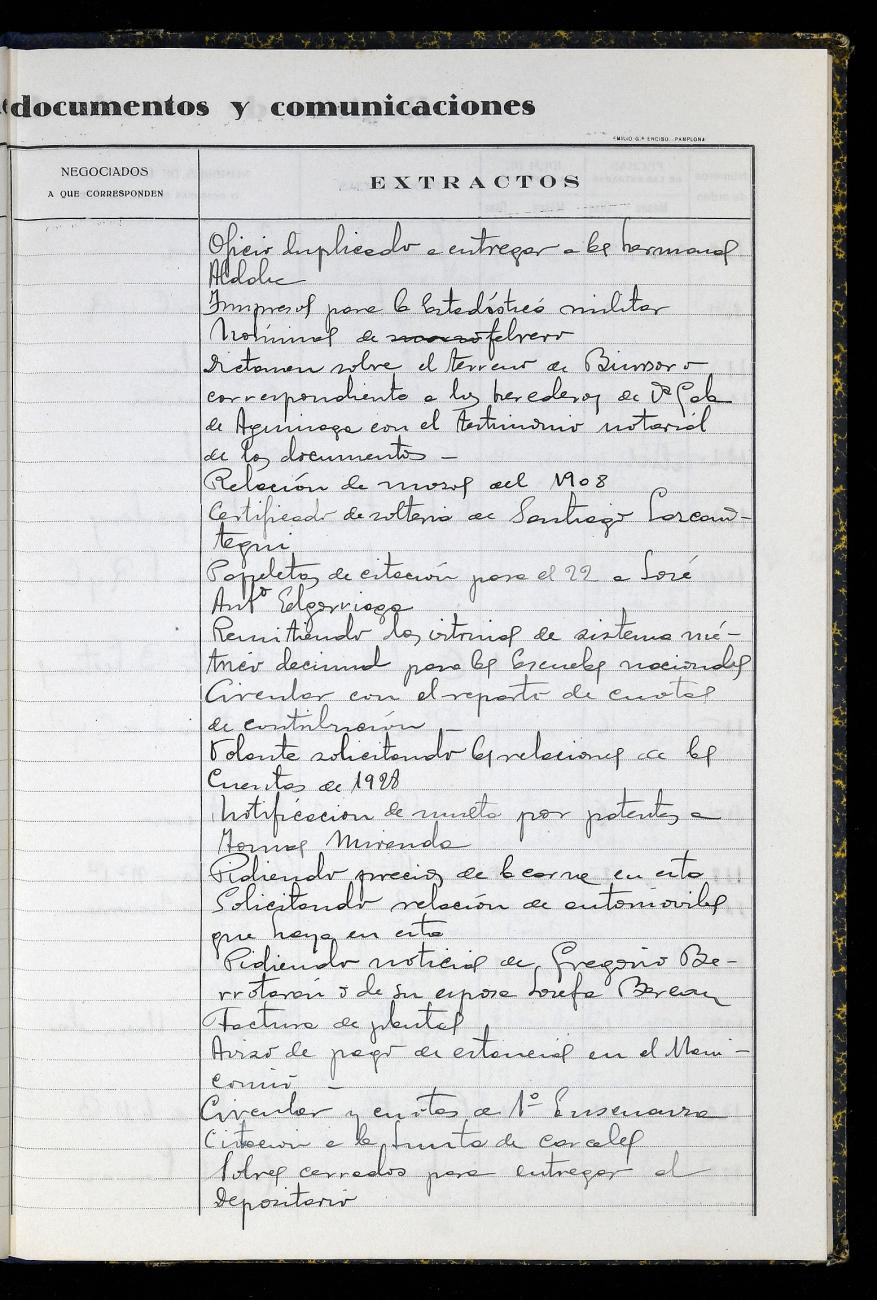 documentos y comunicaciones
EMILIO G.ª ENCISO. PAMPLONA
NEGOCIADOS
A QUE CORRESPONDEN
EXTRACTOS
Oficio duplicado a entregar a las hermanas
Impresos para la Estadística militar
Nóminas de febrero
Dictamen sobre el terreno de
correspondiente a los herederos de Dª
de Aguinaga con el testimonio notarial
de los documentos —
Relación de mozos del 1908
Certificado de solteria de Santiago Larean-
tegui
Papeletas de citación para el 22 a José
Antº Elgorriaga
Remitiendo las vitrinas de sistema mé-
trico decimal para las Escuelas nacionales
Circular con el reparto de cuotas
de contribución
Volante solicitando las relaciones de las
Cuentas de 1928
Notificacion de multa por patentes a
Tomas Miranda
Pidiendo precios de la carne en esta
Solicitando relación de automoviles
que haya en esta
Pidiendo noticias de Gregorio Be-
rrotarán y de su esposa Josefa
Factura de plantas
Aviso de pago de estancias en el Mani-
comio —
Circular y cuotas de 1ª Enseñanza
Citacion a la Junta de carceles
Sobres cerrados para entregar al
Depositario